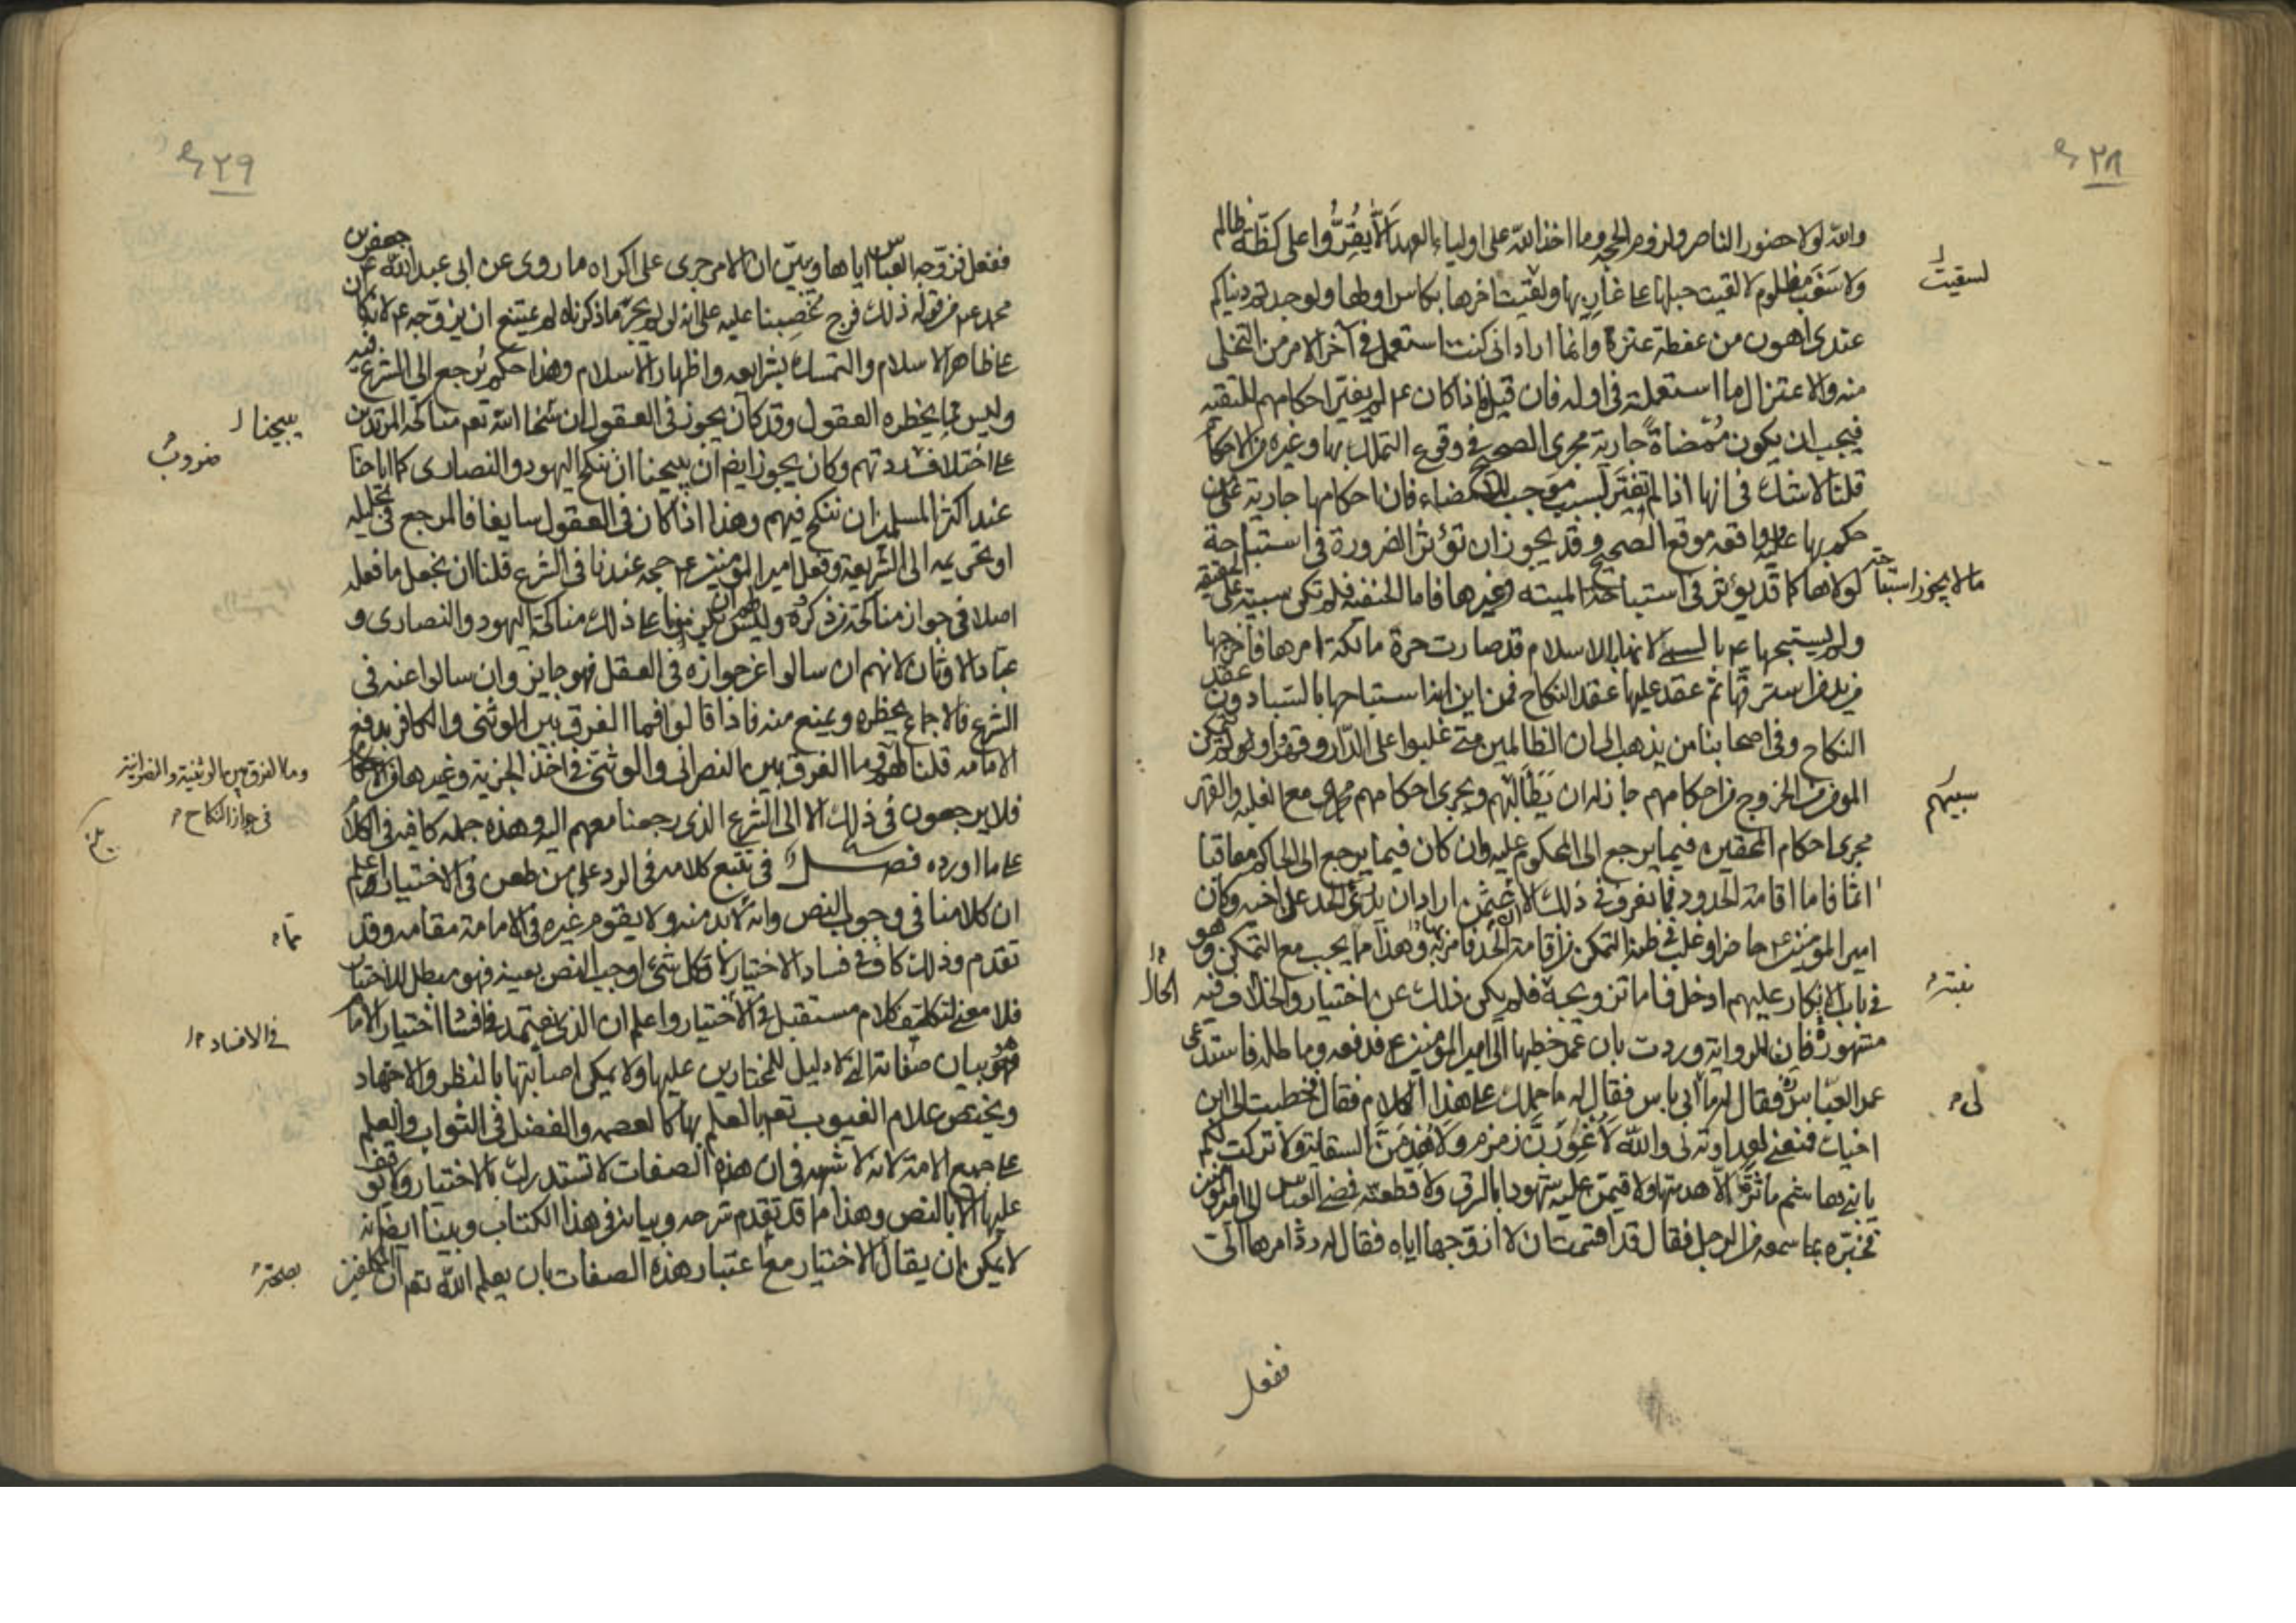 ٢٨
والله لولا حضور الناصر ولزوم الحجة وما اخذ الله على اولياء العهد الّا يُقِرُّوا على كظّة ظالم
ولا سَغَب مظلوم لالقيت حبلها على غاربها ولقيت اخرها بكاس اولها ولوجدتم دنياكم
لسقيت
عندى اهون من عفطة عنز وانما اراد انى كنت استعمل فى آخر الامر من التخلى
منه والاعتزال ما استعملته فى اوله فان قيل فاذا كان ع لم يغير احكامهم للتقيه
فيجب ان يكون مُمْضاةً جارية مجرى الصحيح فى وقوع التملك بها وغيره من الاحكام
قلنا لا شك فى انها اذا لم تغيّر لسبب موجب للامضاء فان احكامها جارية على من
حكم بها عليه وواقعه موقع الصحيح وقد يجوز ان تؤثر الضرورة فى استباحة
ما لا يجوز استباحته لولاها كما قد يؤثر فى استباحة الميته وغيرها فاما الحنفيه فلم تكن سبية على الحقيقه
ولم يستبحها ع بالسبى لانها بالاسلام قد صارت حرة مالكة امرها فاخرجها
من يد من استرقّها ثم عقد عليها عقد النكاح فمن اين انه استباحها بالسبا دون عقد
النكاح وفى اصحابنا من يذهب الى ان الظالمين متى غلبوا على الدار وقهروا ولم يتمكن
المومن من الخروج من احكامهم جاز له ان يَطَأ و يجرى احكامهم مع الغلبه والقهر
سبيهم
مجرى احكام المحقين فيما يرجع الى المحكوم عليه وان كان فيما يرجع الى الحاكم معاقبا
اثما فاما اقامة الحدود فما نعرف فى ذلك الا عثمن اراد ان يدرئ الحد على اخيه وكان
امير المومنين ع حاضرا وغلب فى ظنه التمكن من اقامة الحد فامر به وهذا مما يجب مع التمكن وهو
فى باب الانكار عليهم ادخل فاما تزويجه فلم يكن ذلك عن اختيار والخلاف فيه
بنته
الحال
مشهور فان الرواية وردت بان عمر خطبها الى امير المومنين ع فدفعه وما طله فاستدعى
عمر العباس فقال له ما لى ا باس فقال له ما حملك على هذا الكلام فقال خطبت الى ابن
لى
اخيك فمنعنى لعداوته لى والله لَاُغَوِّرَنَّ زمزم ولَاُهَدِّمَنَّ السقاية ولا تركت لكم
يا بنى هاشم ماثرة الّا هدمتها ولاقيمن عليه شهودا بالسرق ولاقطعنّه فمضى العباس الى امير المومنين
فخبّره بما سمعه من الرجل فقال قد اقسمت ان لا ازوّجها اياه فقال له ردّ امرها الىّ
ففعل
٢٩
ففعل فزوّجه العباس اياها ويبيّن ان الامر جرى على اكراه ما روى عن ابى عبد الله جعفر بن
محمد ع من قوله ذلك فرج غُصِبنا عليه على انه لو لم يجر ما ذكرناه لم يمتنع ان يزوّجه ع لانه كان
على ظاهر الاسلام والتمسك بشرايعه واظهار الاسلام وهذا حكم يُرجع الى الشرع فيه
وليس مما يحظره العقول وقد كان يجوز فى العقول ان الله تعم مناكحة المرتدين
يبيحنا
ضروب
على اختلاف ردتهم وكان يجوز ايضم ان يبيحنا ان ننكح اليهود والنصارى كما اباحنا
عند اكثر المسلمين ان ننكح فيهم وهذا اذا كان فى العقول سايغا فالمرجع فى تحليله
او تحريمه الى الشريعة وفعل امير المومنين ع حجه عندنا فى الشرع قلنا ان نجعل ما فعله
اصلا فى جواز مناكحة من ذكره وليس لهم ان يلزمونا على ذلك مناكحة اليهود والنصارى و
عباد الاوثان لانهم ان سالوا عن جوازه فى العقل فهو جايز وان سالوا عنه فى
الشرع فالاجماع يحظره ويمنع منه فاذا قالوا فما الفرق بين الوثنى والكافر بدفع
الامامه قلنا لهم وما الفرق بين النصرانى والوثنى فى اخذ الجزية وغيرها من الاحكام
وما الفرق بين الوثنية والنصرانية
فى جواز النكاح
فلا يرجعون فى ذلك الا الى الشرع الذى رجعنا معهم اليه وهذه جمله كافيه فى الكلام
على ما اورده فصل فى تتبع كلامه فى الرد على من طعن فى الاختيار اعلم
ان كلامنا فى وجوب النص وانه لا بد منه ولا يقوم غيره فى الامامة مقامه وقد
تقدم وذلك كاف فى فساد الاختيار لان كل شئ اوجب النص بعينه فهو مبطل للاختيار
فلا معنى لتكلف كلام مستقبل فى الاختيار واعلم ان الذى نعتمده فى افساد اختيار الامام
فى الافساد
هو بيان صفاته التى لا دليل للمختارين عليها ولا يمكن اصابتها بالنظر والاجتهاد
ويختص علام الغيوب تعم بالعلم بها كالعصمه والفضل فى الثواب والعلم
على جميع الامة لانه لا شبهه فى ان هذه الصفات لا تستدرك بالاختيار ولا يوقف
عليها الا بالنص وهذا مما قد تقدم شرحه وبيانه فى هذا الكتاب وبينا ايضا انه
لا يمكن ان يقال الاختيار مع اعتبار هذه الصفات بان يعلم الله تعم ان المكلفين
بصحة